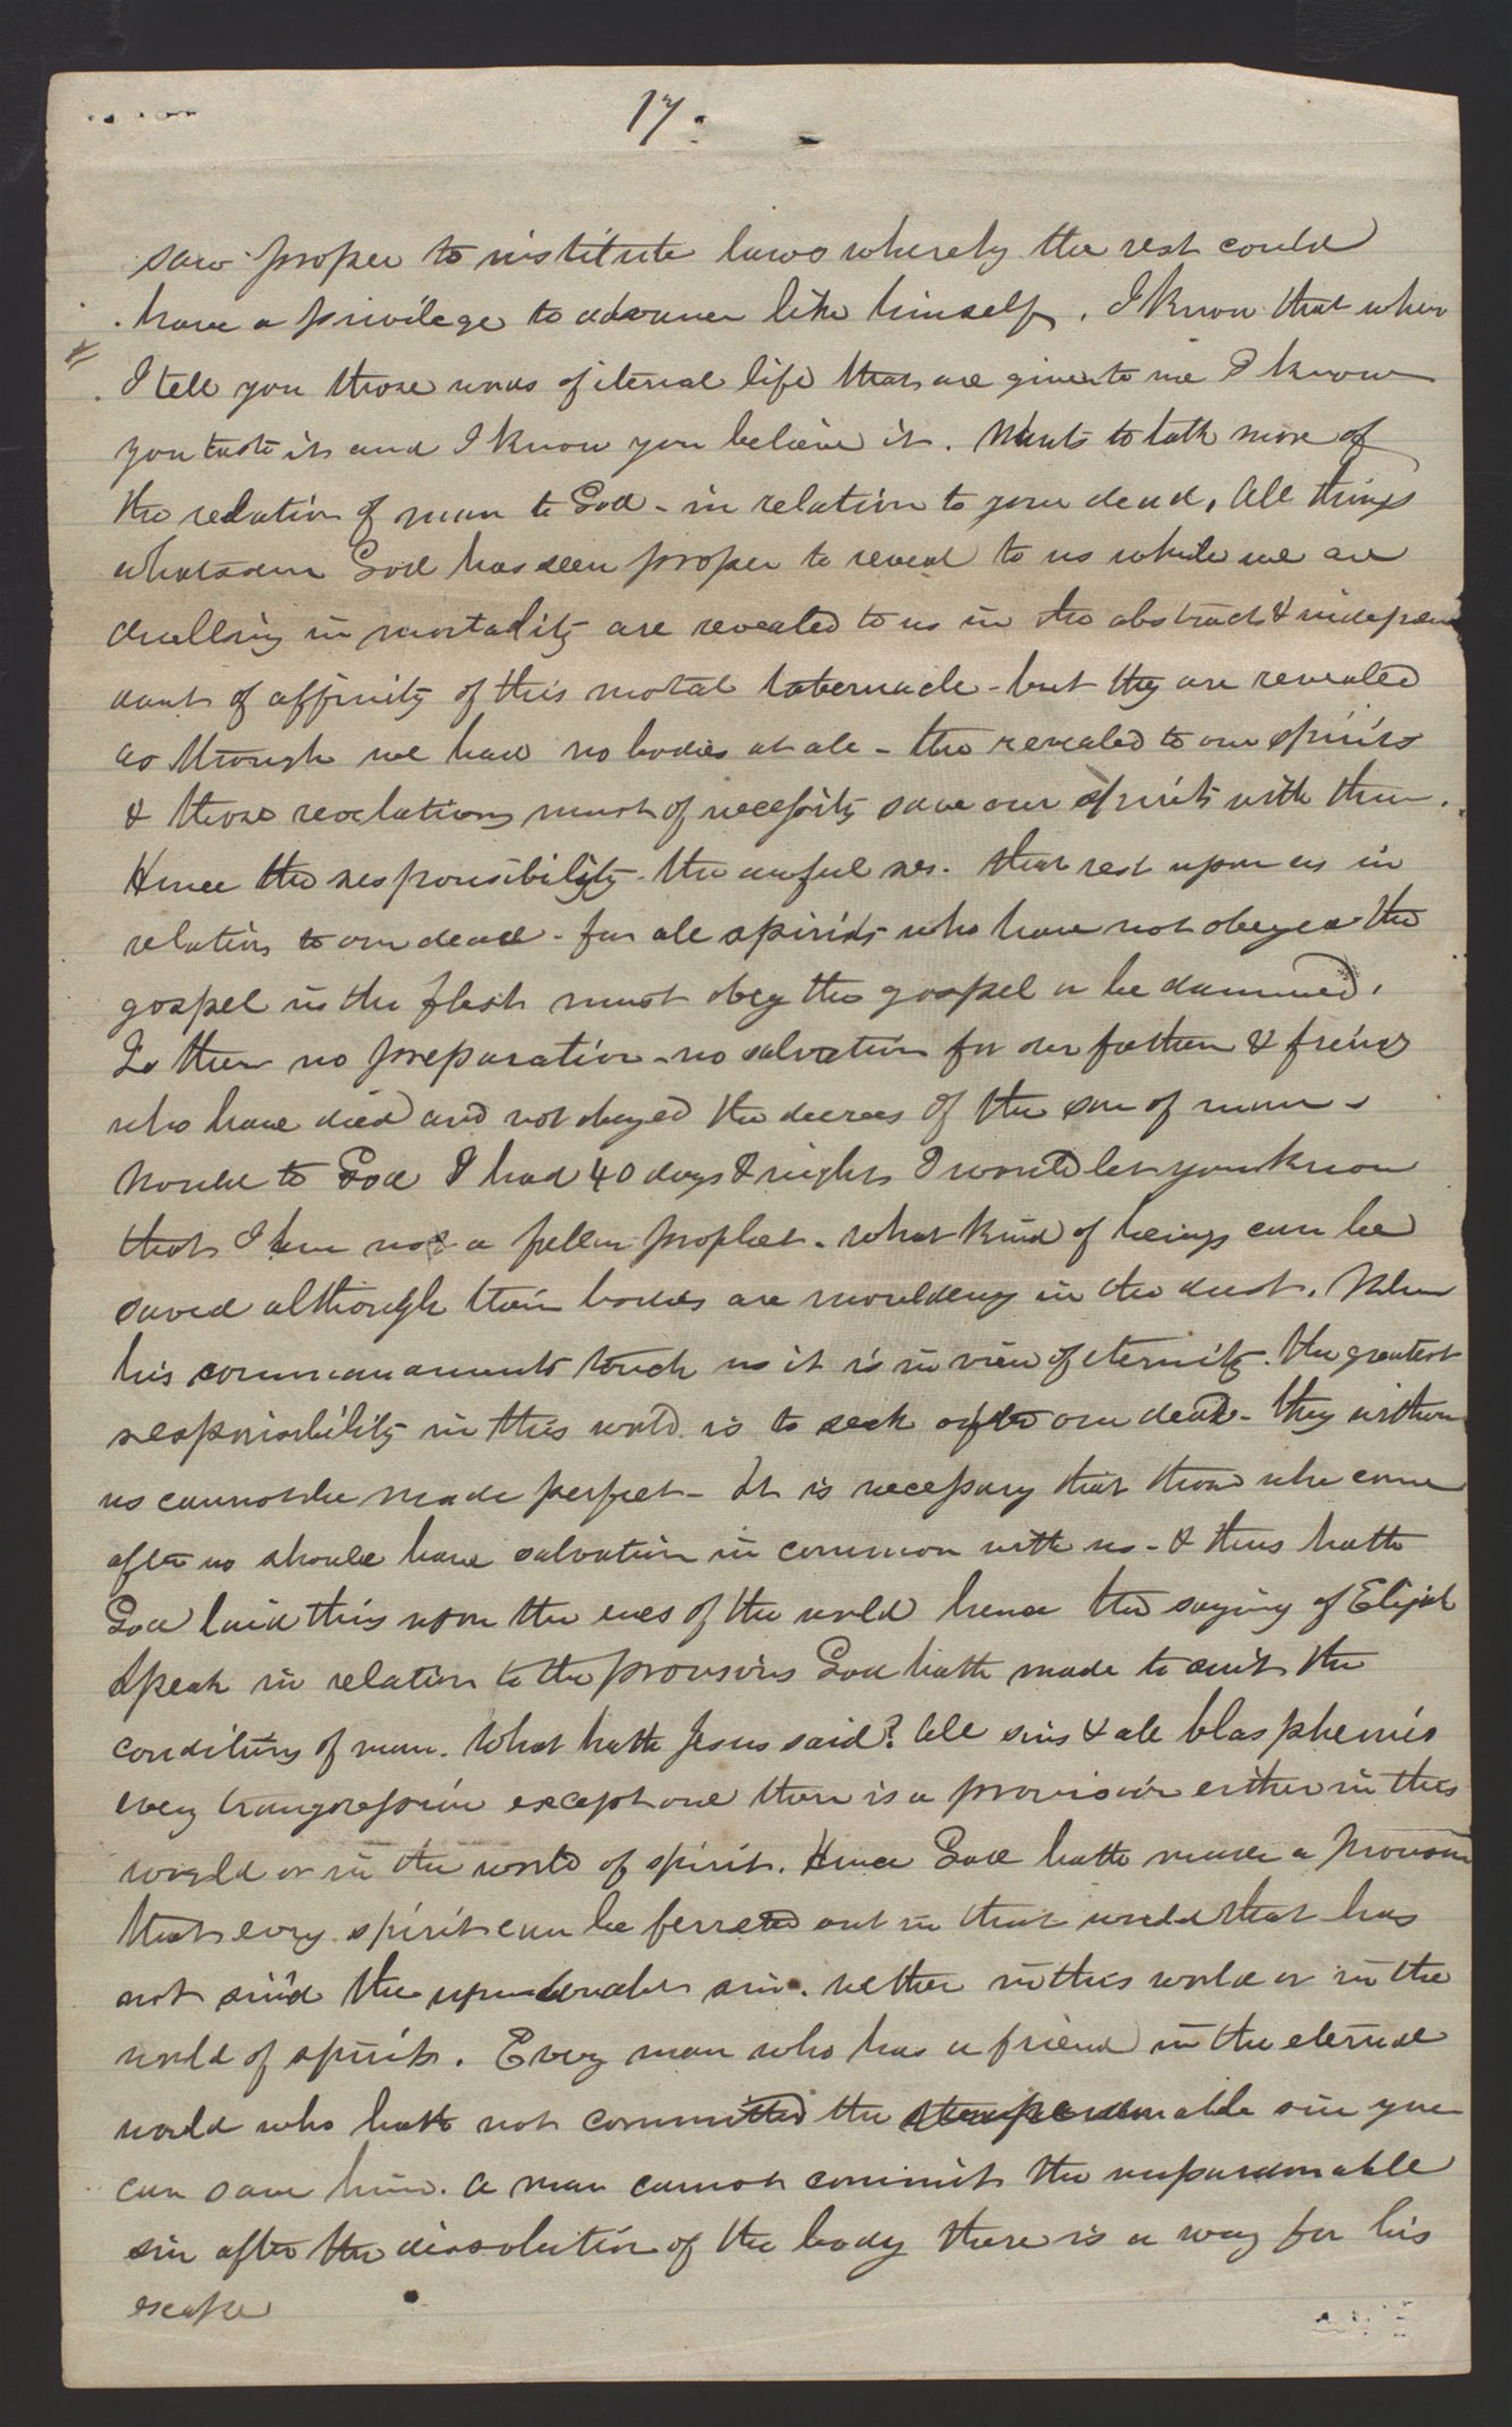 17.
saw proper to institute laws whereby the rest could
have a privilege to advance like himself. I know that when
I tell you those words of eternal life that are given to me I know
you taste it and I know you believe it. Wants to talk more of
the relation of man to God - in relation to your dead, All things
whatsoever God has seen proper to reveal to us while we are
dwelling in mortality are revealed to us in the abstract & indepen
dant of affinity of this mortal tabernacle - but they are revealed
as though we had no bodies at all - the revealed to our spirits
& those revelations must of necessity save our spirits with them.
Hence the responsibility - the awful res. that rest upon us in
relation to our dead - for all spirits who have not obeyed the
gospel in the flesh must obey the gospel or be damned.
Is there no preparation - no salvation for our fathers & friends
who have died and not obeyed the decrees of the son of man -
Would to God I had 40 days & nights I would let you know
that I am not a fallen prophet - what kind of beings can be
saved although their bodies are mouldering in the dust. When
his commandments touch us it is in view of eternity. The greatest
responsibility in this world is to seek after our dead - they without
us cannot be made perfect - It is necessary that those who come
after us should have salvation in common with us - & thus hath
God laid this upon the eves of the world hence the saying of Elijah
speak in relation to the provisions God hath made to suit the
conditions of man. What hath Jesus said? All sins & all blasphemies
every transgression except one there is a provision either in this
world or in the world of spirit. Hence God hath made a provision
that every spirit can be ferreted out in that world that has
not sin'd the unpardonable sin. neither in this world or in the
world of spirits. Every man who has a friend in the eternal
world who hath not committed the unpardonable sin you
can save him. A man cannot commit the unpardonable
sin after the dissolution of the body there is a way for his
escape